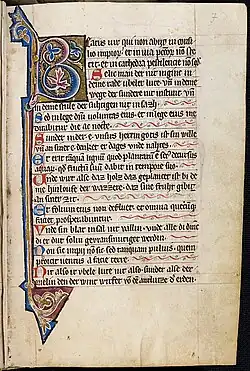 Beatus uir qui non abijt in consi
lio impior et in uia pecco nō ste
tit et in cathedra pestilencie nō sed
Selic man der nit ingine in
deme rade ubeler lute. vn̄ in deme
wege der sundere nit instunt. vn̄
in deme stule der nit in sazh
Sed in lege dn̄i voluntas eius. et in lege eius me
ditabitur die ac nocte
Sunder inder e. unsirs herrin gotis ist sin wille
vn̄ an siner e. denket er dages unde nahtes.
Et erit tāquā lignū quod plantatū ē sec decursus
aquar qd fructū suū dabit in tempore suo
Unde wirt alse daz holz daz geplanzet ist bi de
me hinloufe der wazzere. daz sine fruht gibit
an siner zit.
Et folium eius non defluet. et omnia quecūq
faciet. prosperabuntur
Vnde sin blat nit vallin. vnde alle di dinc
di er duit solin werdin
Non sic impij nō sic sed tanquam puluis. quem
proicit uentus a facie terre.
Nit also ir ubele lute nit also. sunder alse der
den der wint wirfet vō d' antluzze d' erden.